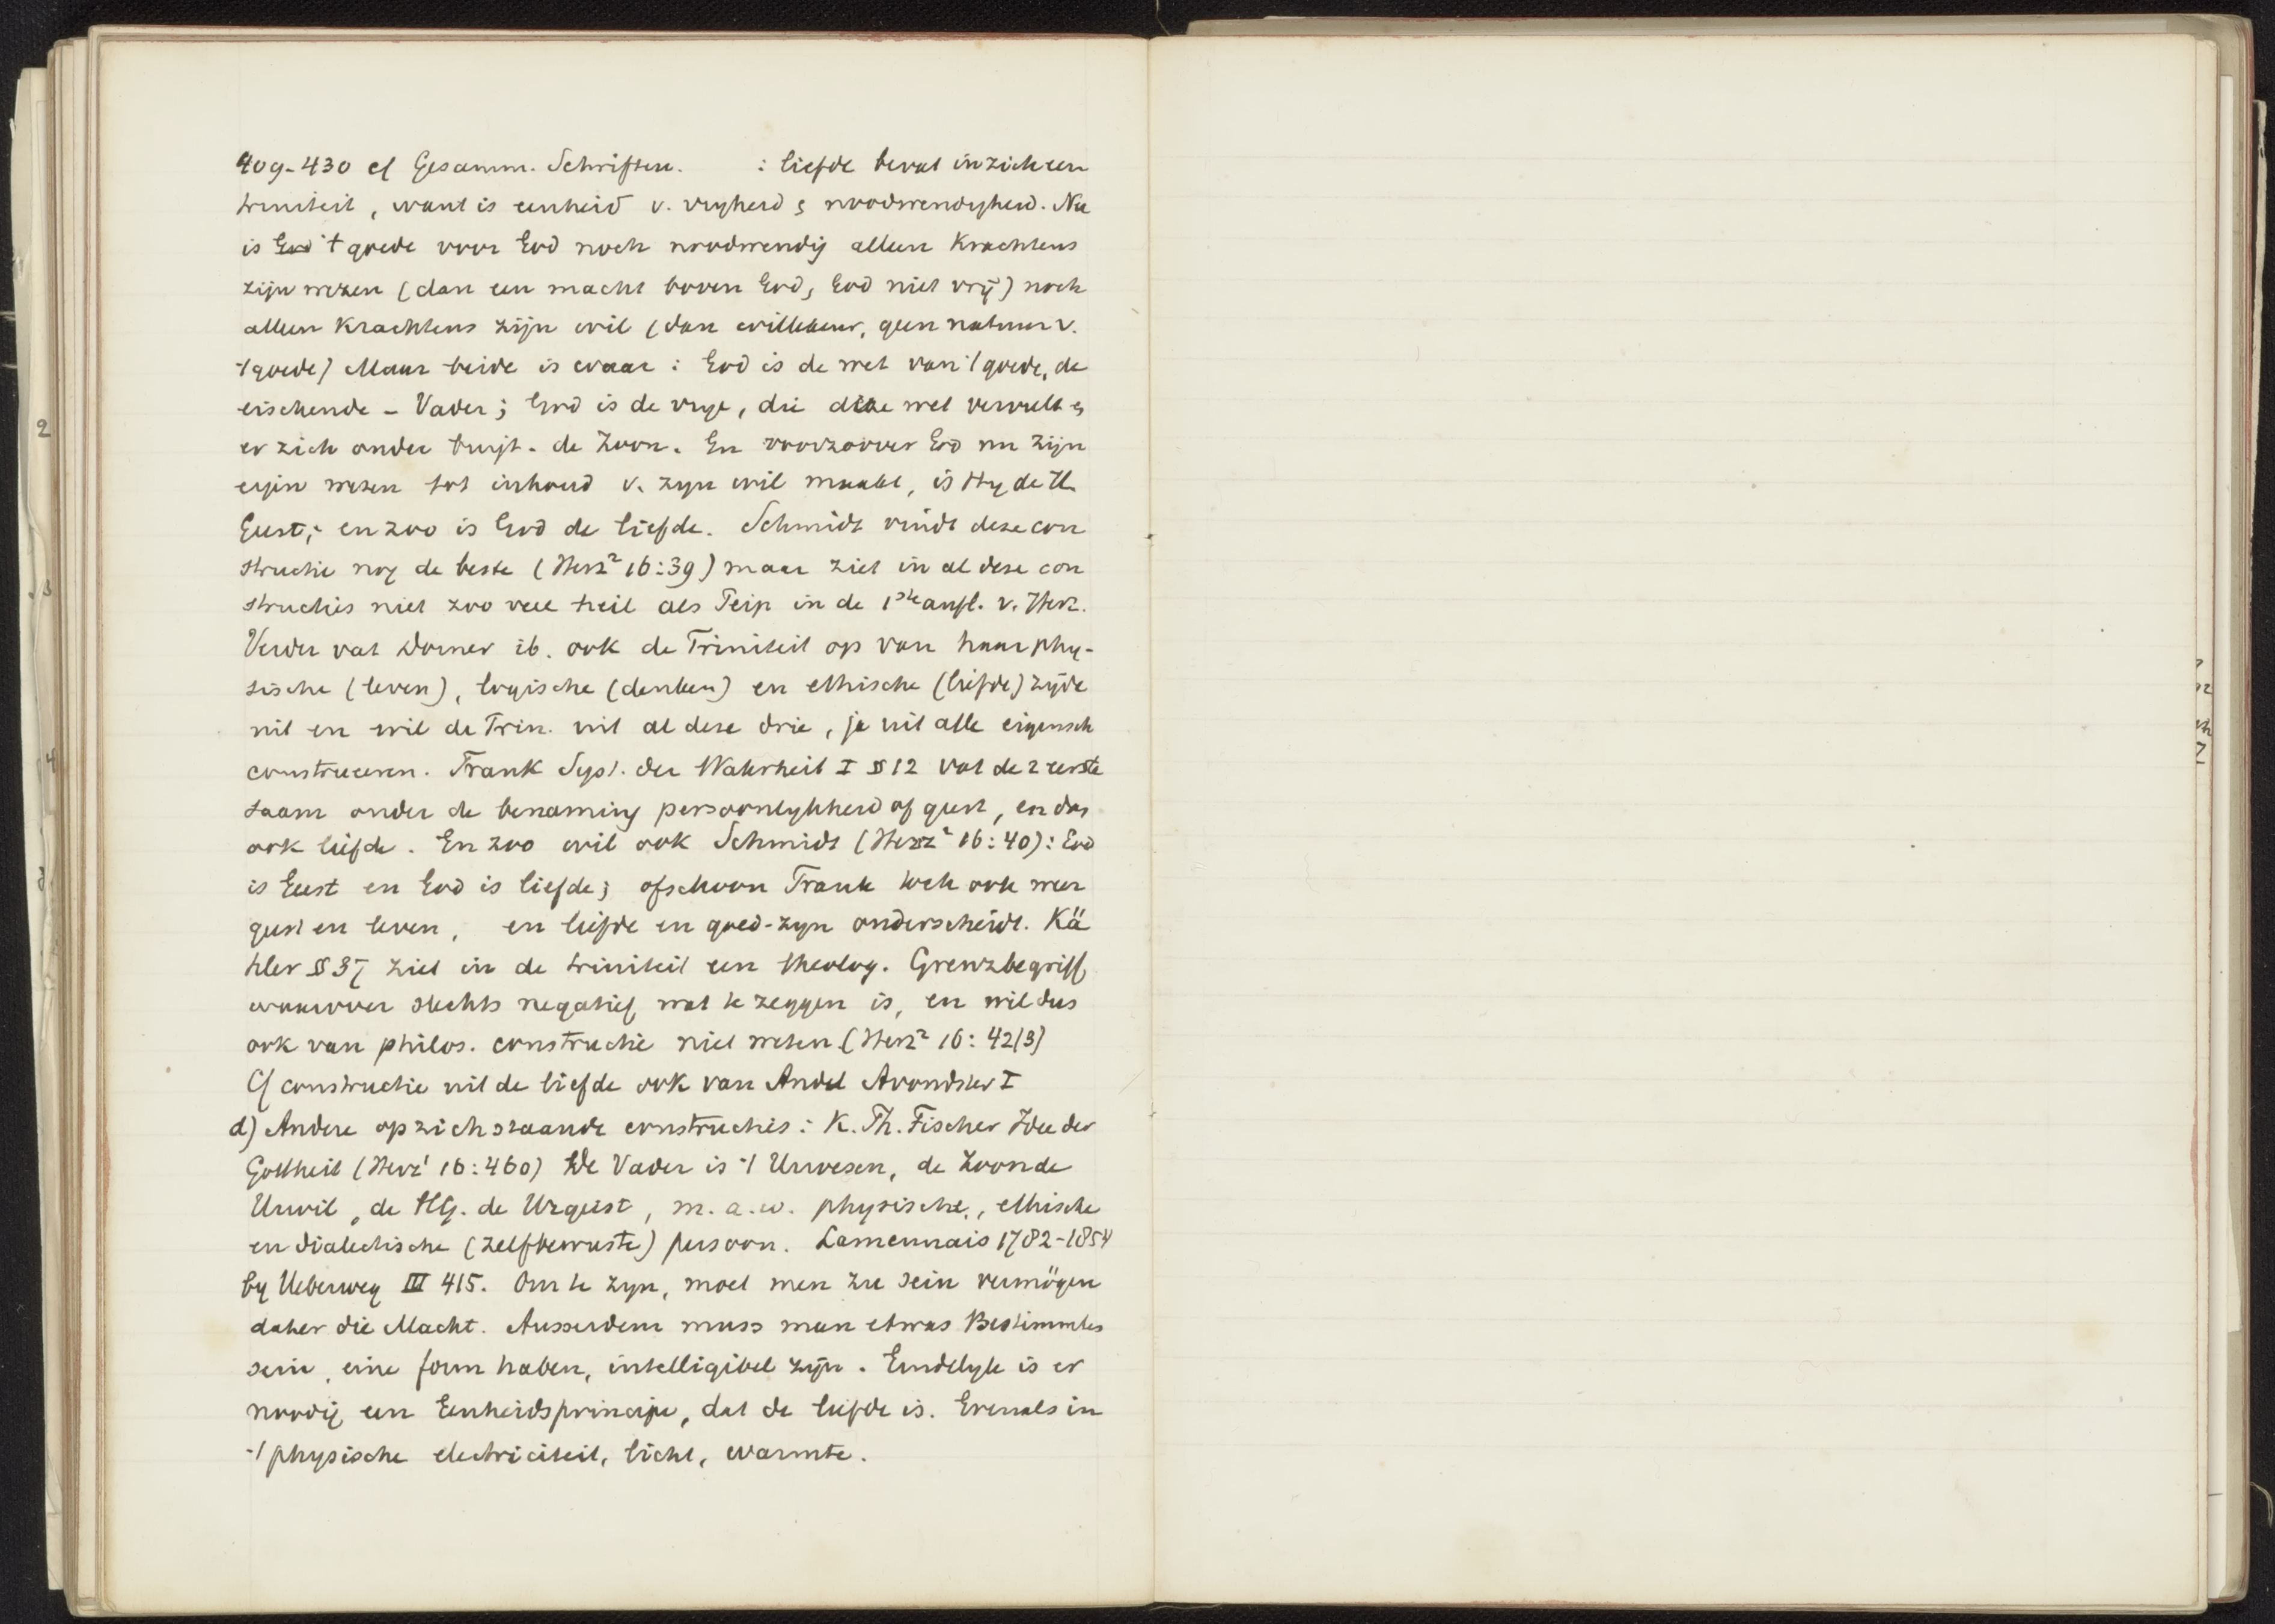 409-430 cf Gesamm. Schriften. : liefde bevat in zich een
triniteit, want is eenheid v. vryheid & noodwendigheid. Nu
is God 't goede voor God noch noodwendig alleen krachtens
zijn wezen (dan een macht boven God, God niet vrij) noch
alleen krachtens zijn wil (dan willekeur, geen natuur v.
't goede) Maar beide is waar: God is de wet van 't goede, de
eischende - Vader; God is de vrye, die deze wet vervult &
er zich onder buigt - de Zoon. En voorzoover God nu zijn
eigen wezen tot inhoud v. zyn wil maakt, is Hy de H.
Geest; en zoo is God de liefde. Schmidt vindt deze con
structie nog de beste (Herz² 16:39) maar ziet in al deze con
structies niet zoo veel heil als Peip in de 1ste aufl. v. Herz.
Verder vat Dorner ib. ook de Triniteit op van haar phy-
sische (leven), logische (denken) en ethische (liefde) zyde
uit en wil de Trin. uit al deze drie, ja uit alle eigensch
construeeren. Frank Syst. der Wahrheit I § 12 vat de 2 eerste
saam onder de benaming persoonlykheid of geest, en dan
ook liefde. En zoo wil ook Schmidt (Herz² 16:40): God
is Geest en God is liefde; ofschoon Frank toch ook weer
geest en leven, en liefde en goed-zyn onderscheidt. Kä
hler § 37 ziet in de triniteit een theolog. Grenzbegriff
waarover slechts negatief wat te zeggen is, en wil dus
ook van philos. constructie niet weten (Herz² 16: 42/3)
Cf constructie uit de liefde ook van Andel Avondster I
d) Andere op zich staande constructies: K. Th. Fischer Idee der
Gottheit (Herz¹ 16:460) De Vader is 't Urwesen, de Zoon de
Urwil, de H.G. de Urgeist, m.a.w. physische, ethische
en dialectische (zelfbewuste) persoon. Lamennais 1782-1854
by Ueberweg III 415. Om te zyn, moet men zu sein vermögen
daher die Macht. Ausserdem muss man etwas Bestimmtes
sein, eine form haben, intelligibel zijn. Eindelyk is er
noodig een Eenheidsprincipe, dat de liefde is. Evenals in
't physische electriciteit, licht, warmte.